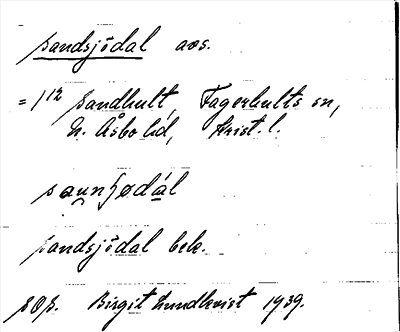 Sandsjödal avs.
= 1¹² Sandhult, Fagerhults sn,
N. Åsbo hd, Krist. l.
saunʃødál
Sandsjödal bek.
SOB. Birgit Lundkvist 1939.